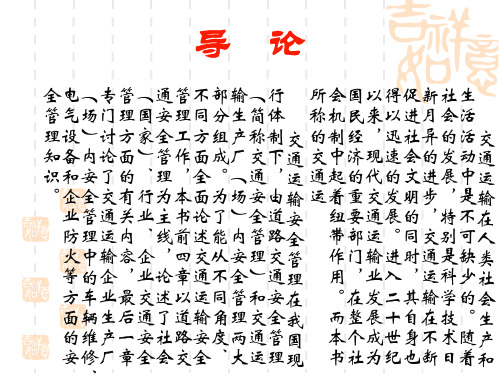 导 论
交通运输在人类社会生产和
生活活动中是不可缺少的。随着
社会的发展，特别是科学技术日
新月异的进步，交通运输在不断
促进社会文明的同时，其自身也
得以迅速的发展。进入二十世纪
以来，现代交通运输业发展成为
国民经济的重要部门，在整个社
会机制中起着纽带作用。而本书
所称的交通运
交通运输安全管理在我国现
行体制下，由道路交通安全管理
（简称交通安全管理）和交通运
输生产厂（场）内安全管理两大
部分组成。为了能从不同角度、
不同方面全面论述交通运输安全
管理工作，本书前四章以道路交
通安全管理为主线，论述了社会
（国家）、行业、企业交通安全
管理方面的有关内容，最后一章
专门讨论了交通运输企业生产厂
（场）内安全管理中的车辆维修、
电气设备和企业防火等方面的安
全管理知识。
吉祥如意